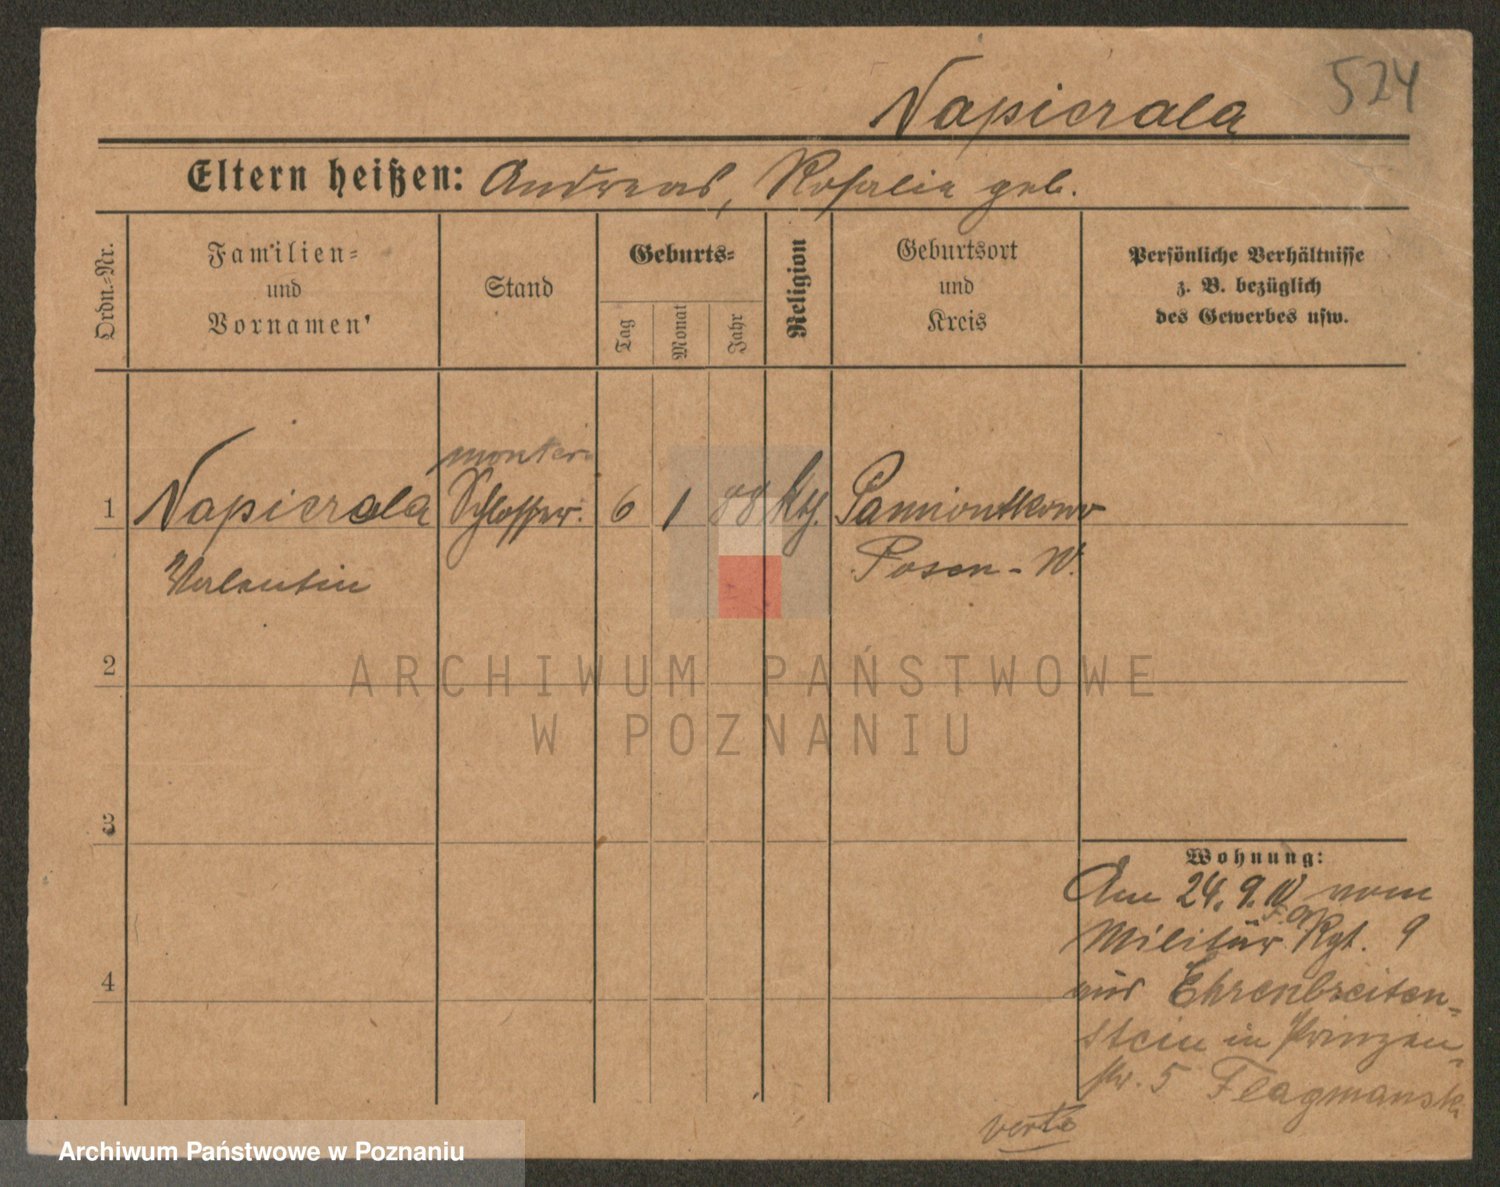 524
Napierala
Eltern heißen: Andreas, Rosalie geb.
Ordn.-Nr.
Familien-
und
Vornamen
Stand
Geburts-
Tag
Monat
Jahr
Religion
Geburtsort
und
Kreis
Persönliche Verhältnisse
z. B. bezüglich
des Gewerbes usw.
monteur
1 Napierala Schlosser. 6 1 88 kth. Pamiontkowo
Valentin Posen-W.
2
3
4
Wohnung:
Am 24.9.10 vom
Militär F.A. Rgt. 9
aus Ehrenbreiten-
stein in Prinzen-
str. 5 Flagmanski
verte
ARCHIWUM PAŃSTWOWE
W POZNANIU
Archiwum Państwowe w Poznaniu